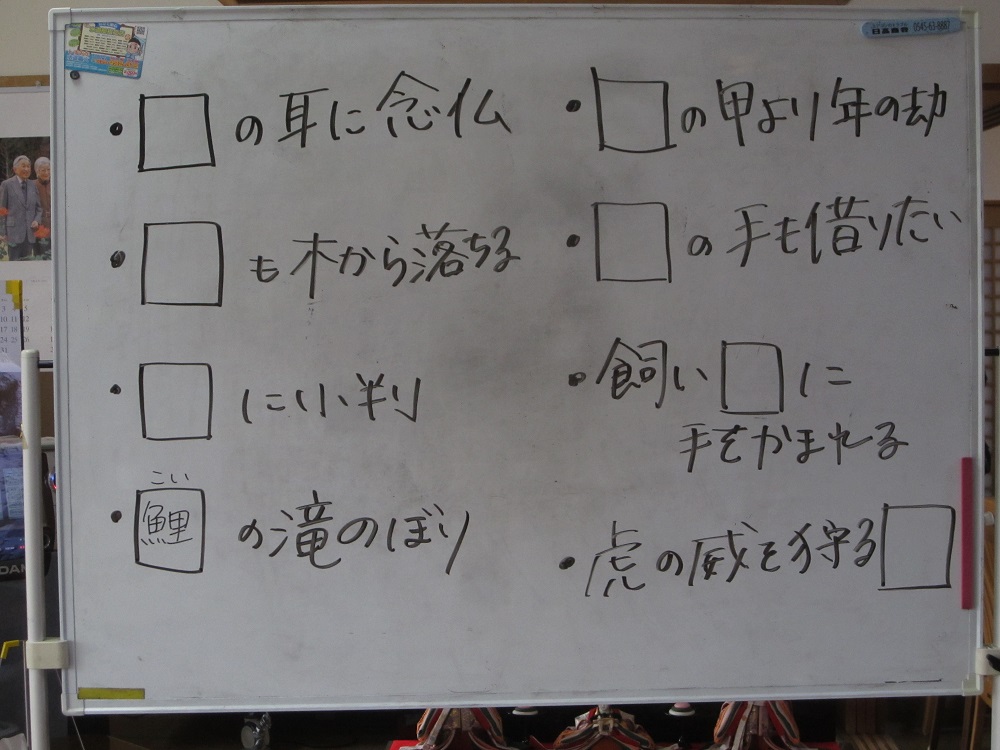 ・□の耳に念仏
・□も木から落ちる
・□に小判
こい
・鯉の滝のぼり
・□の甲より年の劫
・□の手も借りたい
・飼い□に
手をかまれる
・虎の威を狩る□
日高商会 0545-63-8887